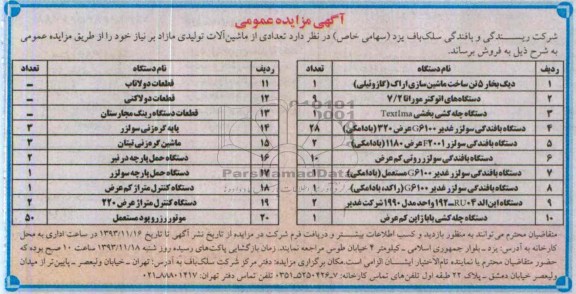 آگهی مزایده عمومی
شرکت ریسندگی و بافندگی سلک‌باف یزد (سهامی خاص) در نظر دارد تعدادی از ماشین‌آلات تولیدی مازاد بر نیاز خود را از طریق مزایده عمومی
به شرح ذیل به فروش برساند.
ردیف نام دستگاه تعداد
۱ دیگ بخار ۵ تن ساخت ماشین‌سازی اراک (گازوئیلی) ۱
۲ دستگاه‌های اتوکنر مورانا ۷/۲ ۹
۳ دستگاه چله‌کشی بخشی Textima ۱
۴ دستگاه بافندگی سولزر غدیر G۶۱۰۰ عرض ۳۲۰ (بادامکی) ۲۸
۵ دستگاه بافندگی سولزر F۲۰۰۱ عرض ۱۱۸۰ (بادامکی) ۲
۶ دستگاه بافندگی سولزر روتی کم عرض ۱۰
۷ دستگاه بافندگی سولزر غدیر G۶۱۰۰ مستعمل (بادامکی) ۷
۸ دستگاه بافندگی سولزر غدیر G۶۱۰۰ (راکد، بادامکی) ۱
۹ دستگاه این‌الد RU۰۴ ـ ۱۹۲ واحد مدل ۱۹۹۰ شرکت غدیر ۲
۱۰ دستگاه چله‌کشی بابا ژاپن کم عرض ۱
ردیف نام دستگاه تعداد
۱۱ قطعات دولاتاب ــ
۱۲ قطعات دولاکنی ــ
۱۳ قطعات دستگاه رینگ مجارستان ــ
۱۴ پایه گره‌زنی سولزر ۳
۱۵ ماشین گره‌زنی تیتان ۳
۱۶ دستگاه حمل پارچه در غیر ۲
۱۷ دستگاه حمل پارچه سولزر ۱
۱۸ دستگاه کنترل متراژ کم عرض ۱
۱۹ دستگاه کنترل متراژ عرض ۲۲۰ ۲
۲۰ موتور رزروپود مستعمل ۵۰
متقاضیان محترم می‌توانند به منظور بازدید و کسب اطلاعات بیشتر و دریافت فرم شرکت در مزایده از تاریخ نشر آگهی تا تاریخ ۱۳۹۳/۱۱/۱۶ در ساعات اداری به محل
کارخانه به آدرس: یزد ـ بلوار جمهوری اسلامی ـ کیلومتر ۴ خیابان طوس مراجعه نمایند. زمان بازگشایی پاکت‌های رسیده روز شنبه ۱۳۹۳/۱۱/۱۸ ساعت ۱۰ صبح بوده که
حضور متقاضیان یا نماینده تام‌الاختیار ایشان الزامی است. مکان برگزاری مزایده: دفتر مرکز شرکت سلک‌باف به آدرس: تهران ـ خیابان ولیعصر ـ پایین‌تر از میدان
ولیعصر خیابان دمشق ـ پلاک ۲۲ طبقه اول تلفن‌های تماس کارخانه: ۷ـ۰۳۵۱ـ۵۲۵۰۴۲۶ تلفن تماس دفتر تهران: ۰۲۱ـ۸۸۸۰۱۴۱۷